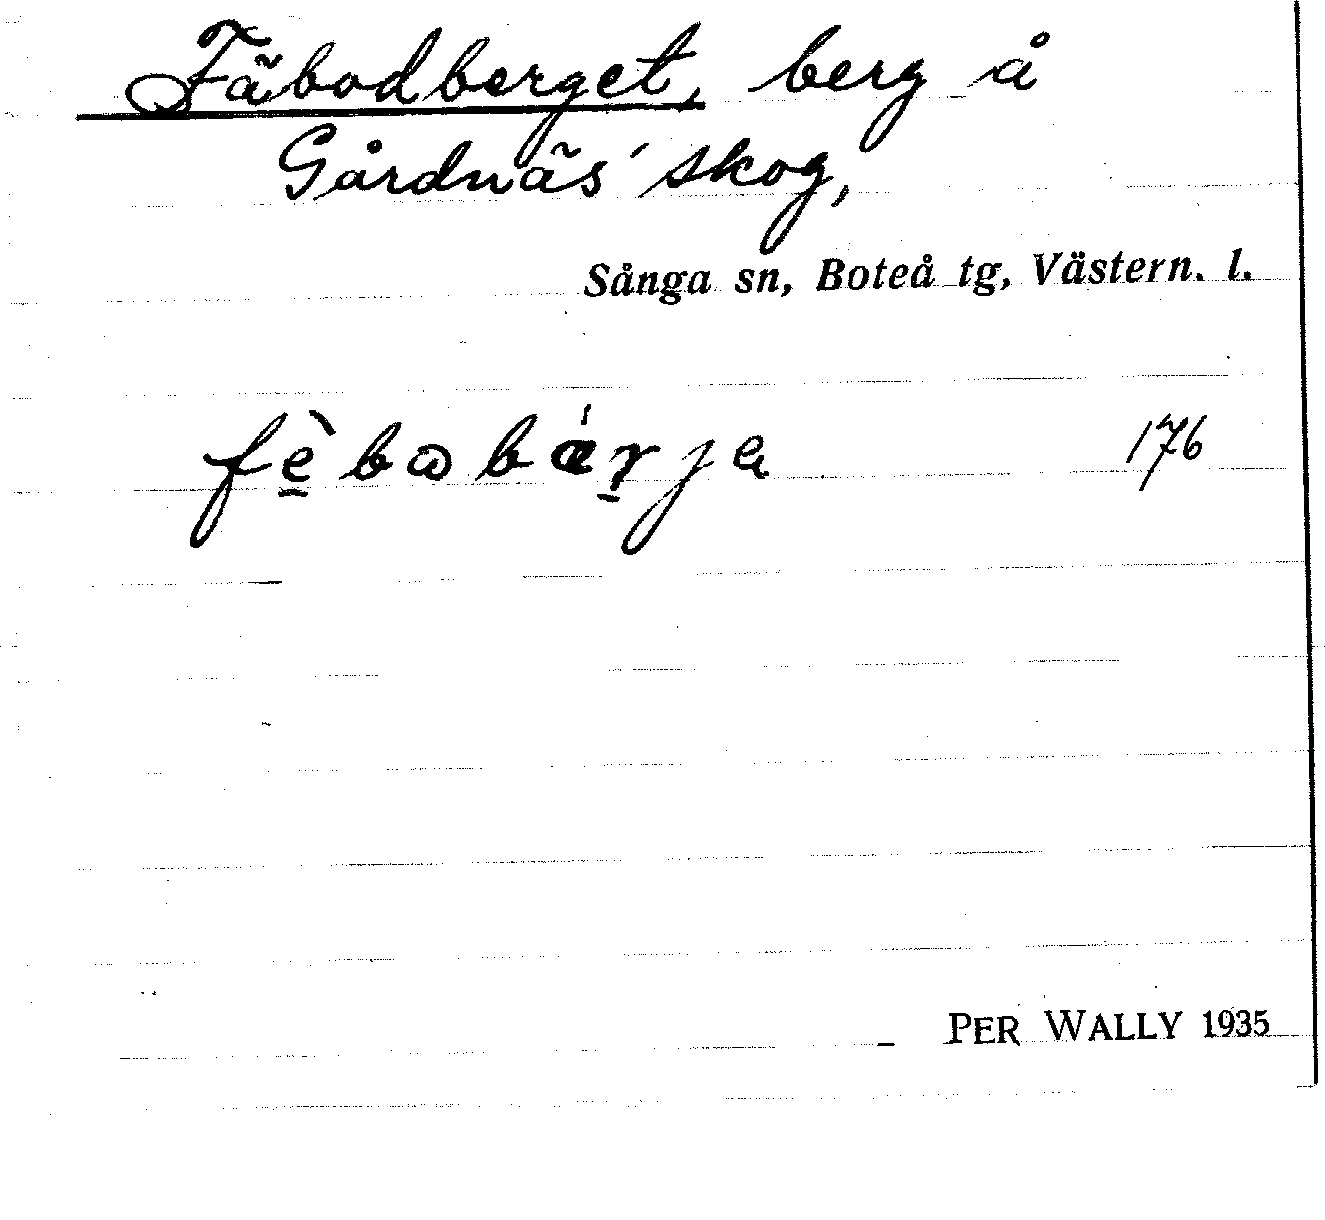 Fäbodberget, berg å
Gårdnäs' skog,
Sånga sn, Boteå tg, Västern. l.
fè̱bɷbǽr̠ja 176
PER WALLY 1935